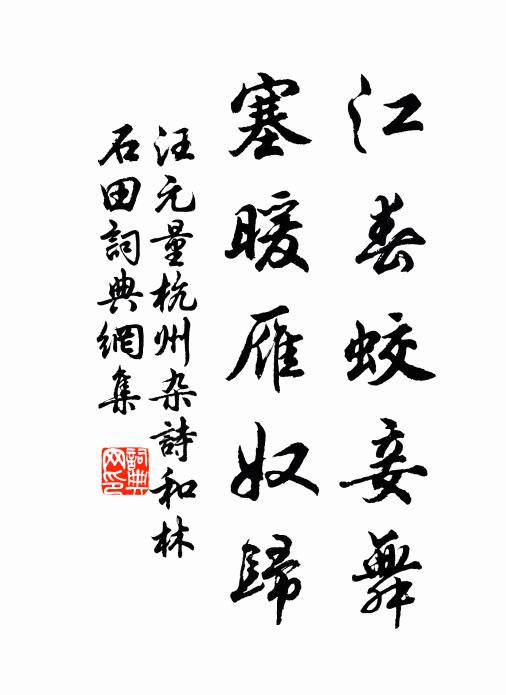 江春蛟妾舞
塞暖雁奴歸
汪元量杭州杂詩和林
石田詞典網集
詞典网印